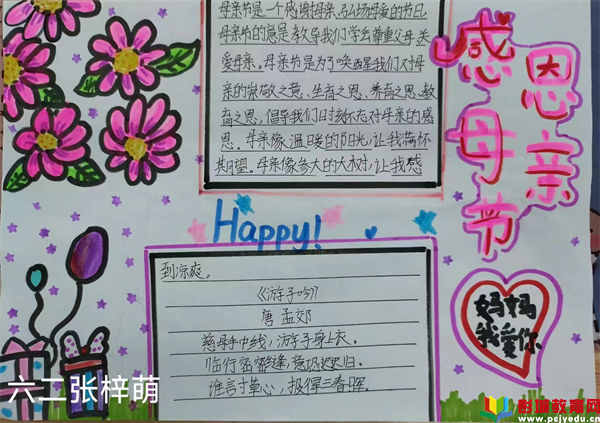 母亲节是一个感谢母亲、弘扬母爱的节日
母亲节的意是教导我们学会尊重父母 关
爱母亲。母亲节是为了唤醒我们对母
亲的崇敬之意、生育之恩、养育之恩、教
育之恩，倡导我们时刻不忘对母亲的感
恩。母亲像温暖的阳光，让我满怀
期望。母亲像参大的大树，让我感
感恩
母亲
节
Happy!
到凉爽。
《游子吟》
唐 孟郊
慈母手中线，游子身上衣。
临行密密缝，意恐迟迟归。
谁言寸草心，报得三春晖。
妈妈
我爱你
六二张梓萌
教育网
www.pcjyedu.cn